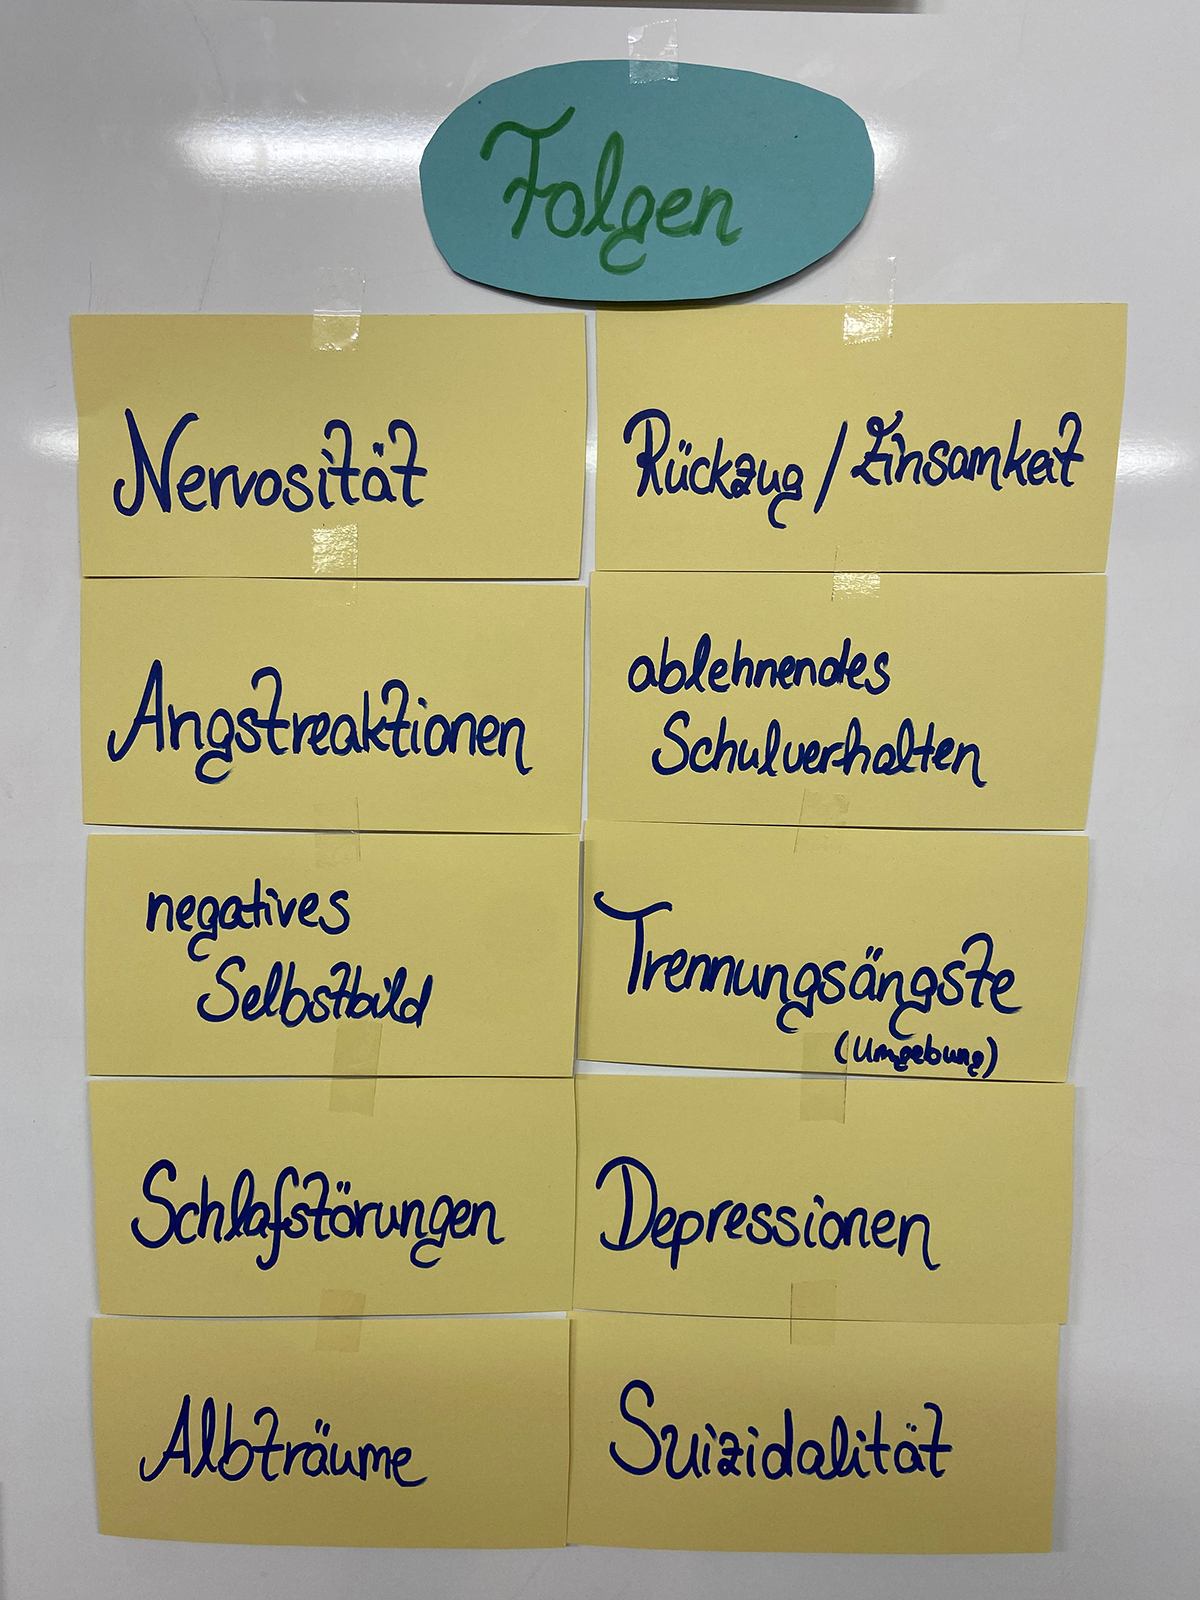 Folgen
Nervosität
Angstreaktionen
negatives
Selbstbild
Schlafstörungen
Albträume
Rückzug / Einsamkeit
ablehnendes
Schulverhalten
Trennungsängste
(Umgebung)
Depressionen
Suizidalität